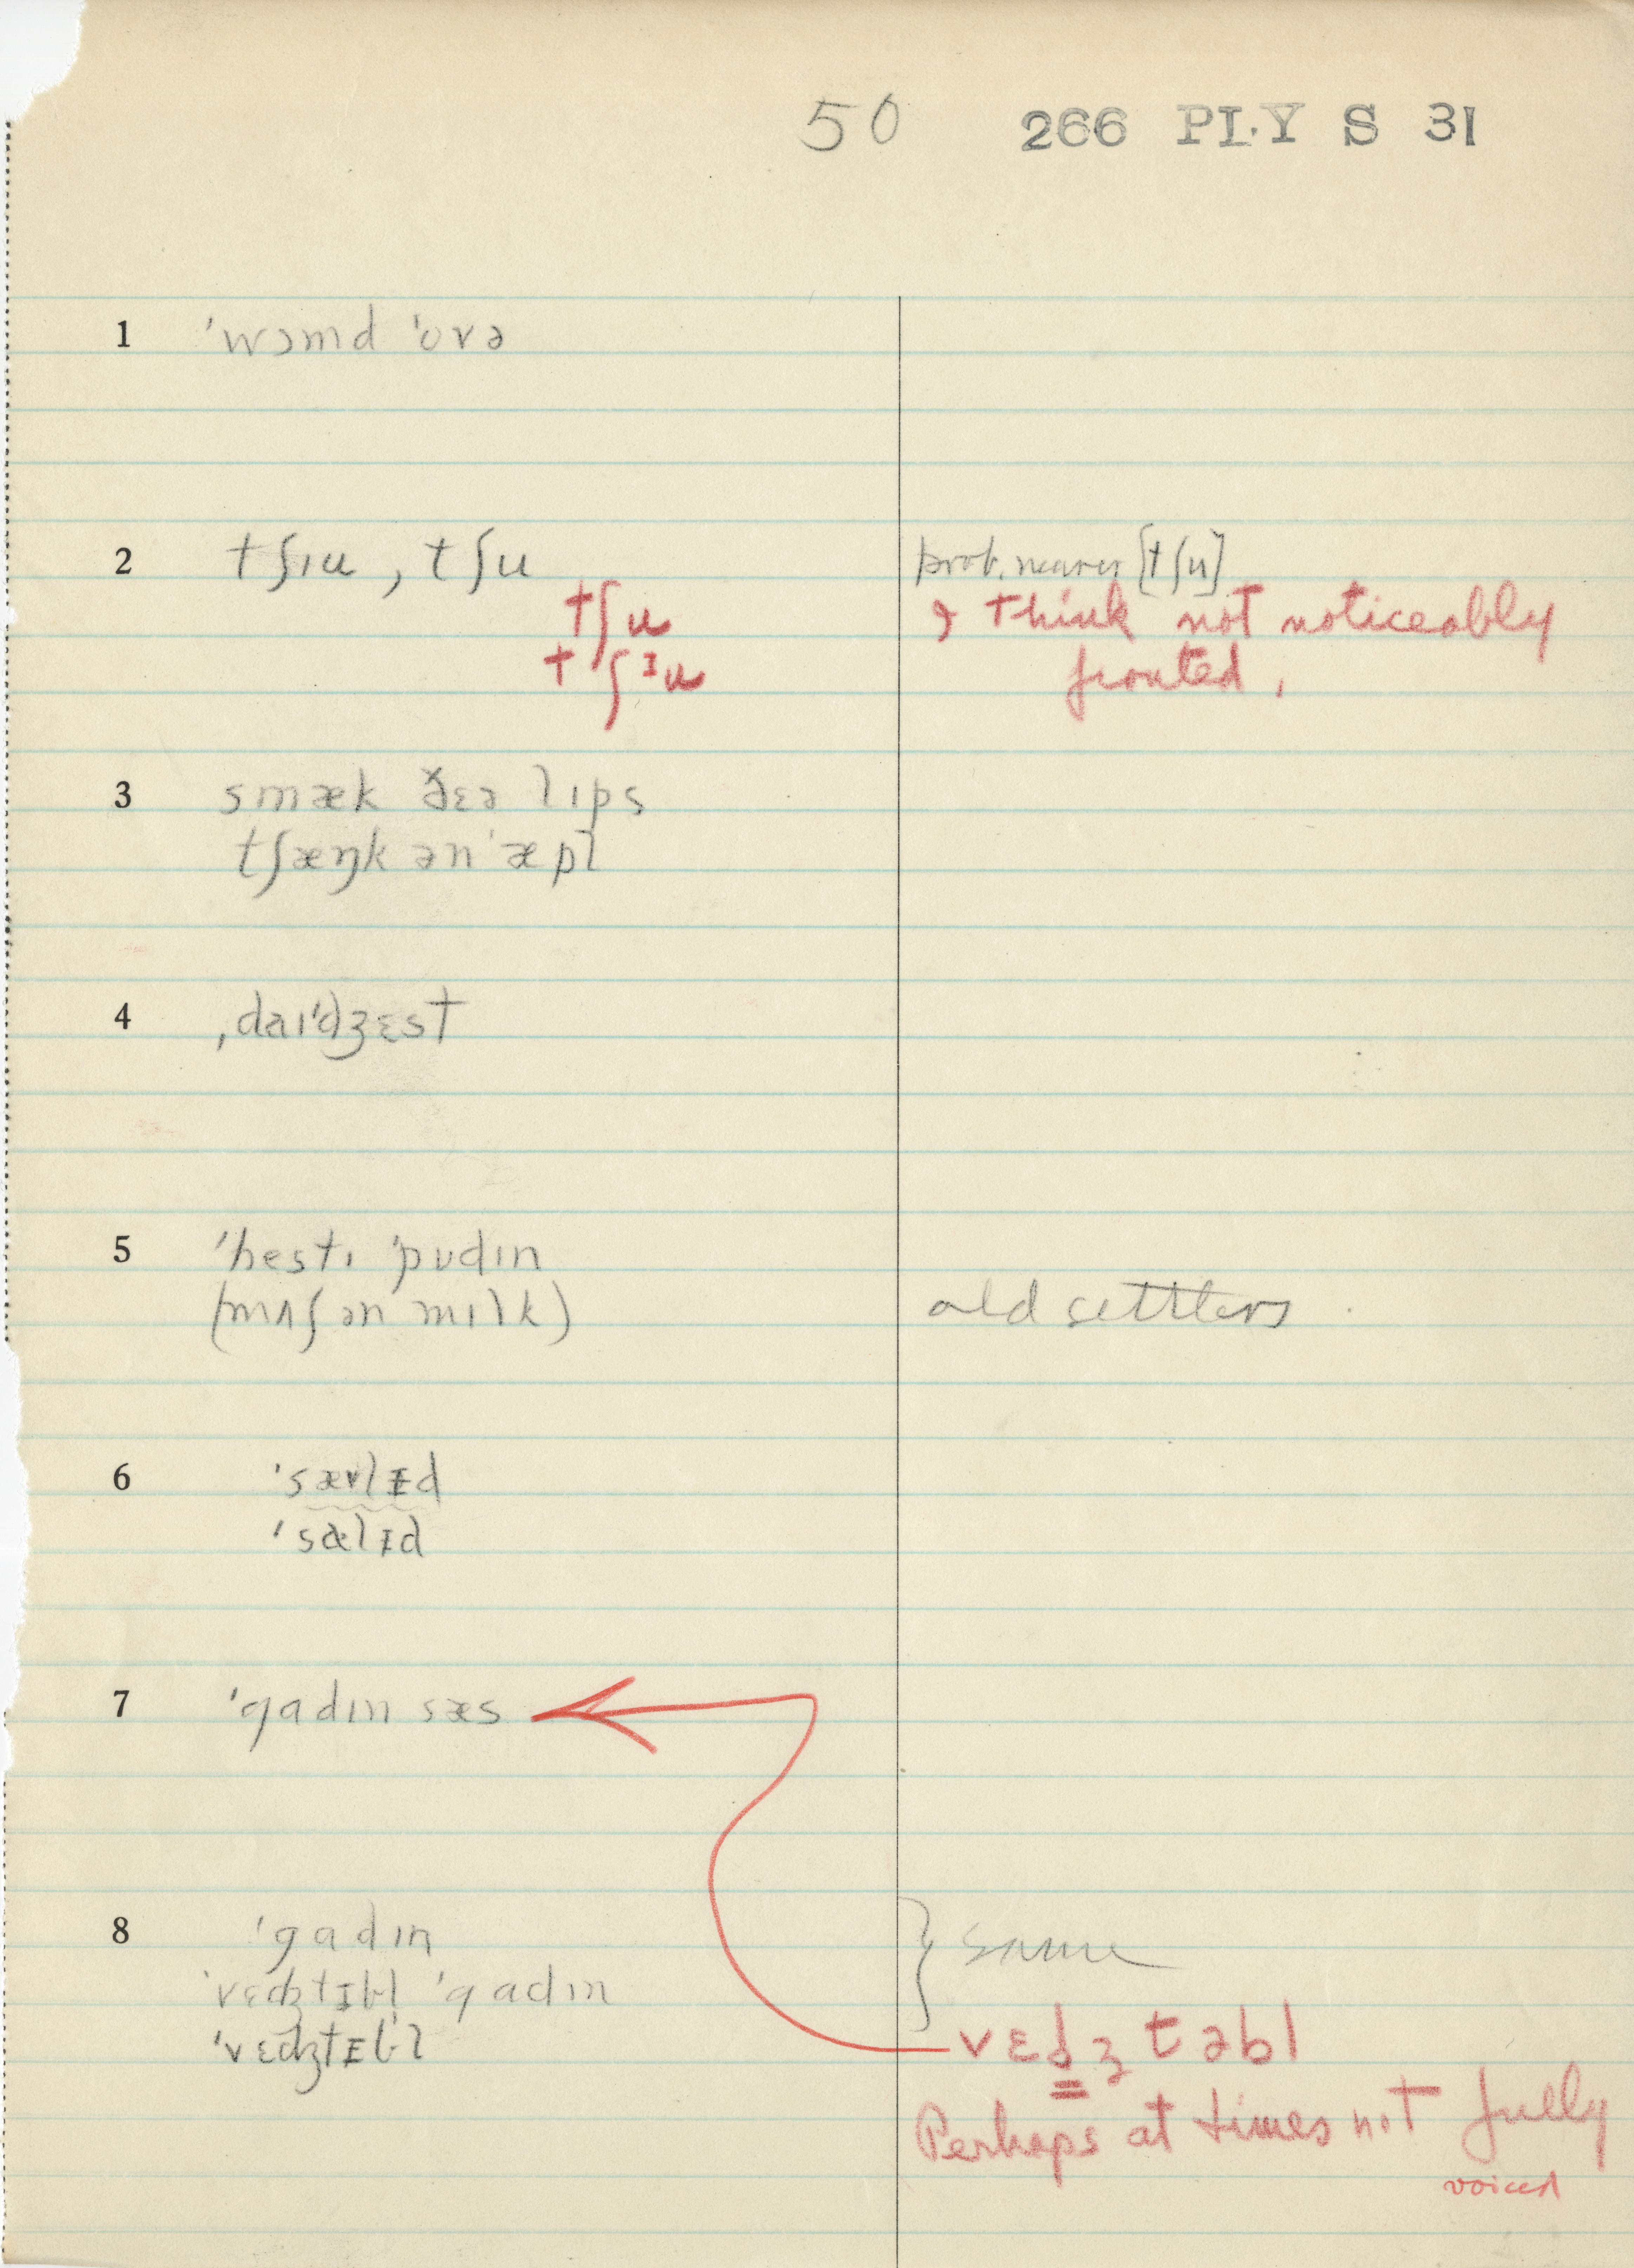 50 266 PLY S 31
1 ˈwɔmd ˈovə
2 tʃɪu, tʃu prob. nearer [tʃu]
tʃu I think not noticeably
tʃᶦu fronted.
3 smæk ðɛə lɪps
tʃæŋk ən ˈæpl
4 ˌdaɪˈdʒɛst
5 ˈhestɪ ˈpudɪn
(mʌʃ ən mɪlk) old settlers.
6 ˈsævlᵻd
ˈsælᵻd
7 ˈgadɪn sæs
8 ˈgadɪn } same
ˈvɛdʒtᵻbl ˈgadɪn
ˈvɛdʒtᵻbl vɛdʒtəbl
Perhaps at times not fully
voiced